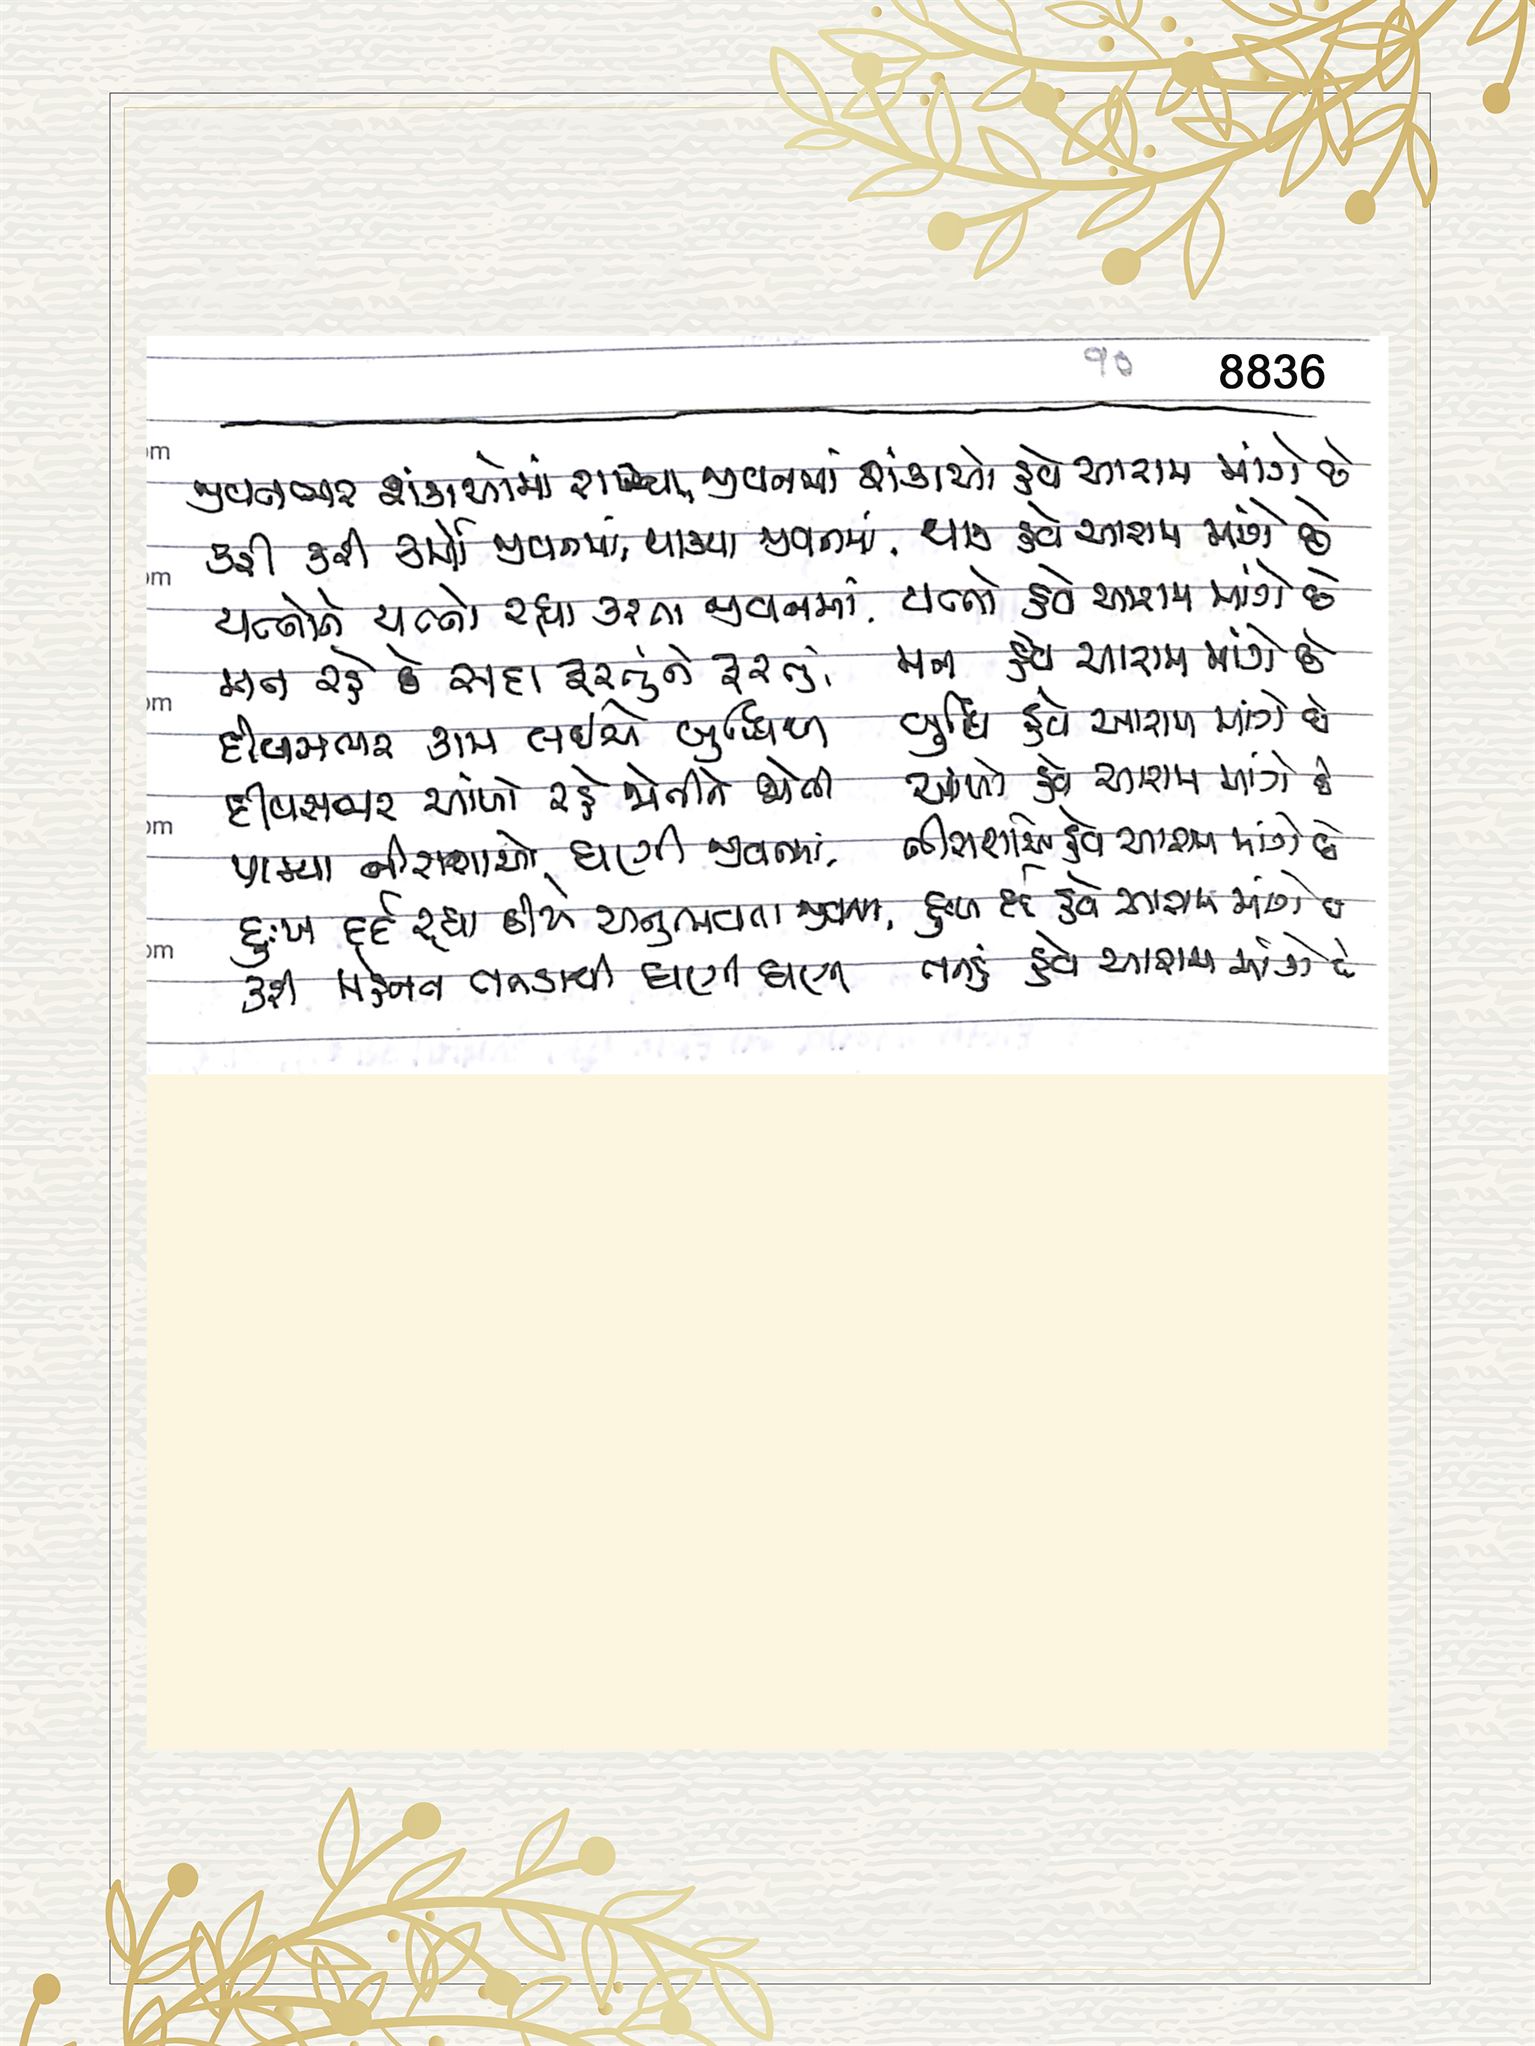 ૧૦ 8836
જીવનભર શંકાઓમાં રાચ્યા, જીવનમાં શંકાઓ હવે આરામ માંગે છે
કરી કરી કર્મો જીવનમાં, થાક્યા જીવનમાં, થાક હવે આરામ માંગે છે
યત્નોને યત્નો રહ્યા કરતા જીવનમાં, યત્નો હવે આરામ માંગે છે
મન રહે છે સદા ફરતુંને ફરતું, મન હવે આરામ માંગે છે
દીવસભર કામ લઈએ બુદ્ધિથી બુદ્ધિ હવે આરામ માંગે છે
દીવસભર આંખો રહે જોતીને જોતી આંખો હવે આરામ માંગે છે
પામ્યા નીરાશાઓ ઘણી જીવનમાં, નીરાશાઓ હવે આરામ માંગે છે
દુઃખ દર્દ રહ્યા છીએ અનુભવતા જીવનમાં, દુઃખ દર્દ હવે આરામ માંગે છે
કરી મહેનત તનડાથી ઘણી ઘણી તનડું હવે આરામ માંગે છે
om
om
om
om
om